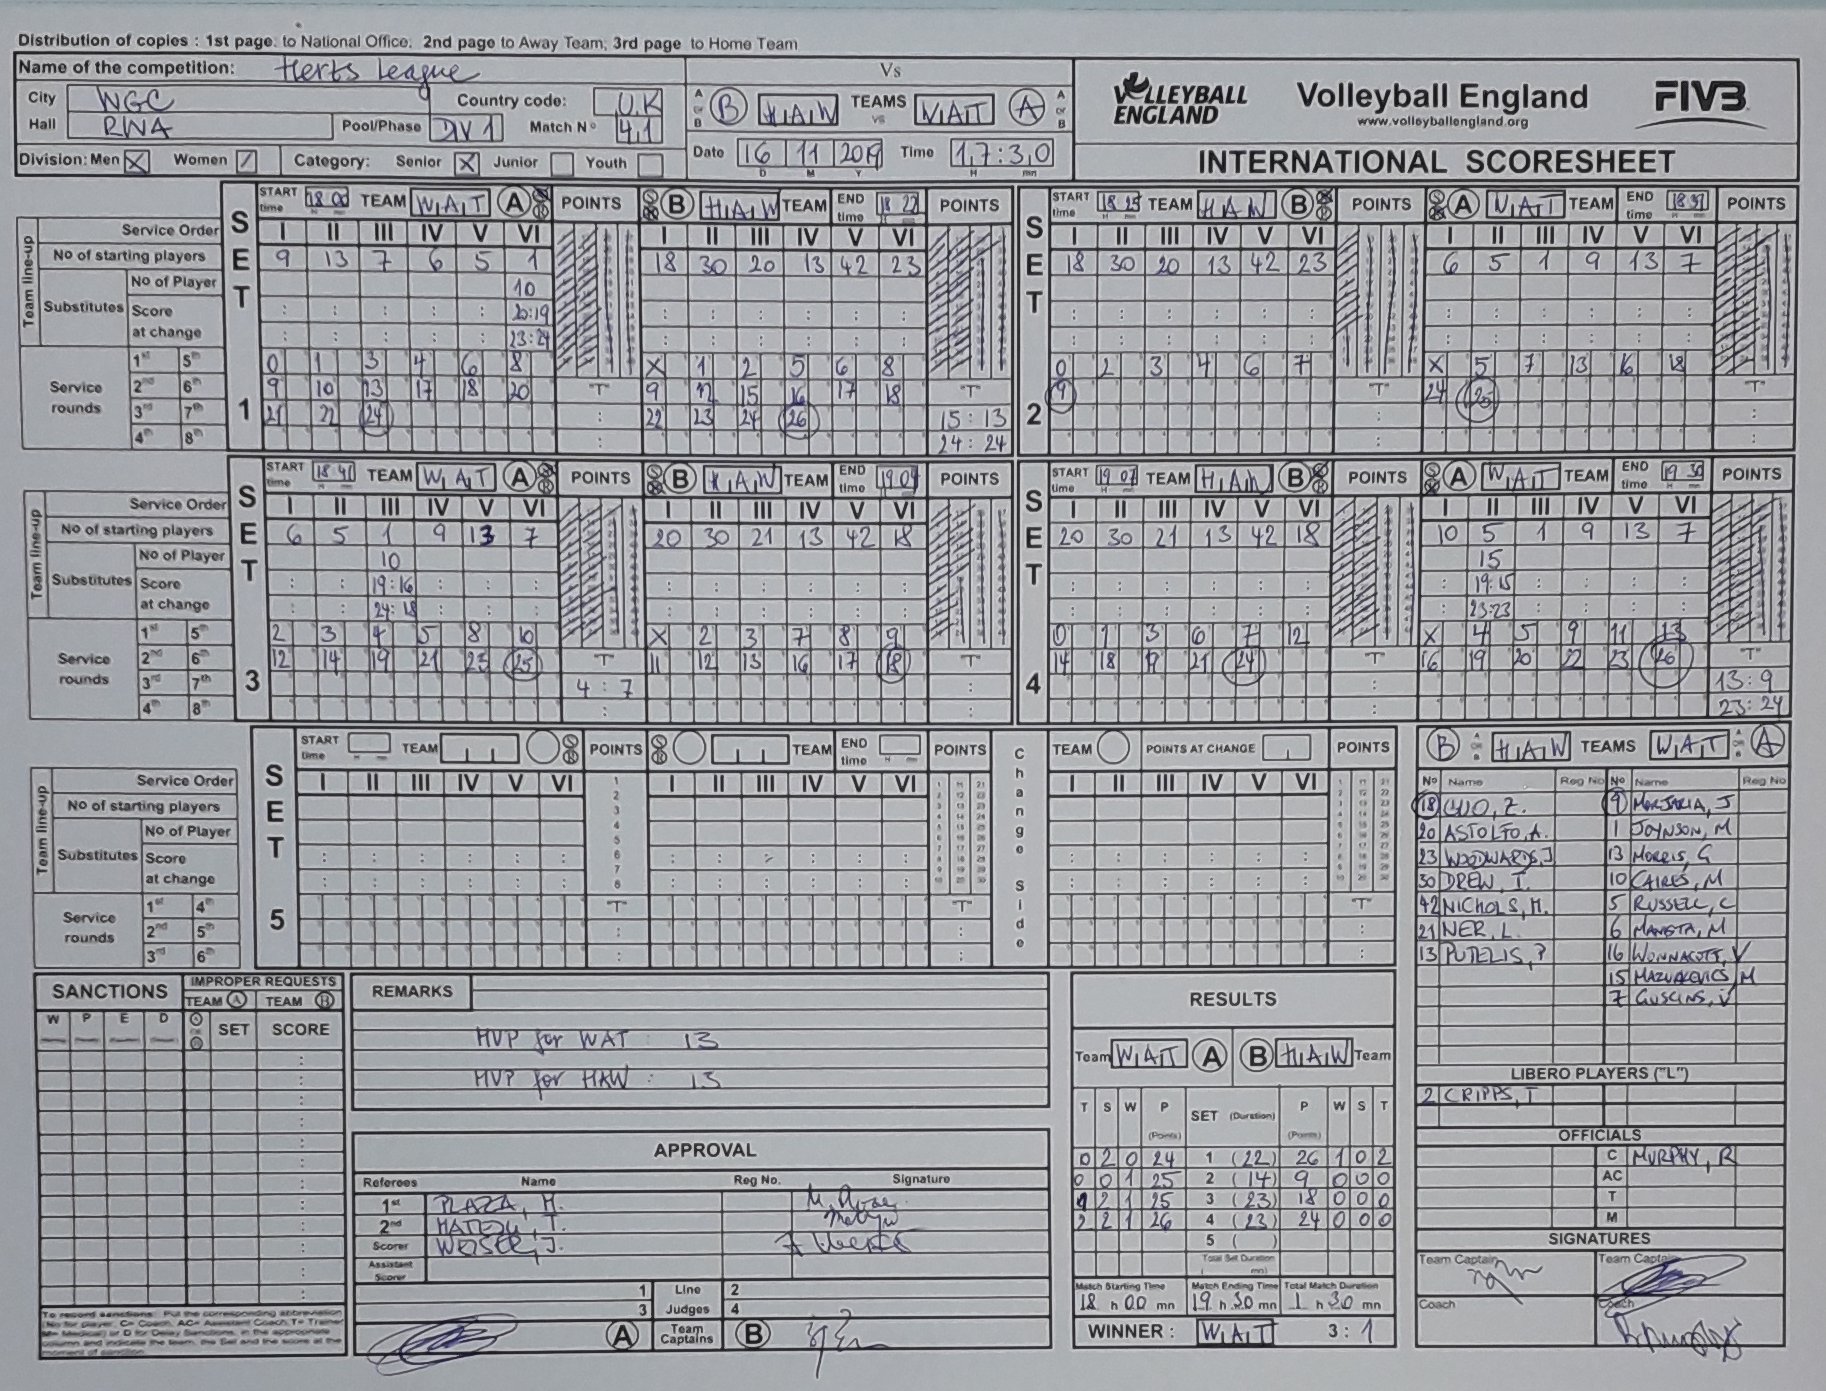 Distribution of copies : 1st page: to National Office; 2nd page to Away Team; 3rd page to Home Team
Name of the competition: Herts League
Vs
City WGC Country code: U.K
Hall RWA Pool/Phase DIV 1 Match N° 4,1
A or B B H,A,W TEAMS vs W,A,T A A or B
Date 16 11 2019 Time 1,7:3,0
D M Y H mn
Division: Men X Women / Category: Senior X Junior Youth
VOLLEYBALL ENGLAND
Volleyball England
www.volleyballengland.org
FIVB
INTERNATIONAL SCORESHEET
SET 1
START time 18 00 TEAM W,A,T A POINTS B H,A,W TEAM END time 18 22 POINTS
Service Order I II III IV V VI I II III IV V VI
No of starting players 9 13 7 6 5 1 18 30 20 13 42 23
Team line-up
Substitutes No of Player 10
Score 20:19
at change 23:24
Service rounds
1st 5th 0 1 3 4 6 8 X 1 2 5 6 8
2nd 6th 9 10 13 17 18 20 "T" 9 12 15 16 17 18 "T"
3rd 7th 21 22 24 22 23 24 26 15:13
4th 8th 24:24
SET 2
START time 18 25 TEAM H,A,W B POINTS A W,A,T TEAM END time 18 39 POINTS
I II III IV V VI I II III IV V VI
18 30 20 13 42 23 6 5 1 9 13 7
0 2 3 4 6 7 X 5 7 13 16 18
9 "T" 24 25 "T"
SET 3
START time 18 41 TEAM W,A,T A POINTS B H,A,W TEAM END time 19 04 POINTS
Service Order I II III IV V VI I II III IV V VI
No of starting players 6 5 1 9 13 7 20 30 21 13 42 18
Team line-up
Substitutes No of Player 10
Score 19:16
at change 24:18
Service rounds
1st 5th 2 3 4 5 8 10 X 2 3 7 8 9
2nd 6th 12 14 19 21 23 25 "T" 11 12 13 16 17 18 "T"
3rd 7th 4 : 7
4th 8th
SET 4
START time 19 07 TEAM H,A,W B POINTS A W,A,T TEAM END time 19 30 POINTS
I II III IV V VI I II III IV V VI
20 30 21 13 42 18 10 5 1 9 13 7
15
19:15
23:23
0 1 3 6 7 12 X 4 5 9 11 13
14 18 19 21 24 "T" 16 19 20 22 23 26 "T"
13:9
23:24
SET 5
START time TEAM POINTS TEAM END time POINTS
Change Side
TEAM POINTS AT CHANGE POINTS
Service Order I II III IV V VI I II III IV V VI I II III IV V VI
No of starting players
Team line-up
Substitutes No of Player
Score
at change
Service rounds
1st 4th "T" "T" "T"
2nd 5th
3rd 6th
B H,A,W TEAMS W,A,T A
No Name Reg No No Name Reg No
18 GUO, Z. 9 MORJARIA, J
20 ASTOLFO, A. 1 JOYNSON, M
23 WOODWARDS, J 13 MORRIS, G
30 DREW, T. 10 CAIRES, M
42 NICHOLS, M. 5 RUSSELL, C
21 NER, L. 6 MANSTA, M
13 PUTELIS, P 16 WONNACOTT, V
15 MAZURKEVICS M
7 GUSCINS, V
LIBERO PLAYERS ("L")
2 CRIPPS, T
OFFICIALS
C MURPHY, R
AC
T
M
SIGNATURES
Team Captain Team Captain
Coach Coach
SANCTIONS
IMPROPER REQUESTS
TEAM A TEAM B
W P E D A or B SET SCORE
To record sanctions: Put the corresponding abbreviation
REMARKS
MVP for WAT : 13
MVP for HAW : 13
APPROVAL
Referees Name Reg No. Signature
1st PLAZA, M.
2nd MATEJU, T.
Scorer WEISER, J.
Assistant Scorer
1 Line 2
3 Judges 4
A Team Captains B
RESULTS
Team W,A,T A B H,A,W Team
T S W P (Points) SET (Duration) P (Points) W S T
0 2 0 24 1 (22) 26 1 0 2
0 0 1 25 2 (14) 9 0 0 0
1 2 1 25 3 (23) 18 0 0 0
2 2 1 26 4 (23) 24 0 0 0
5 ( )
Total Set Duration
( mn)
Match Starting Time Match Ending Time Total Match Duration
18 h 00 mn 19 h 30 mn 1 h 30 mn
WINNER : W,A,T 3 : 1